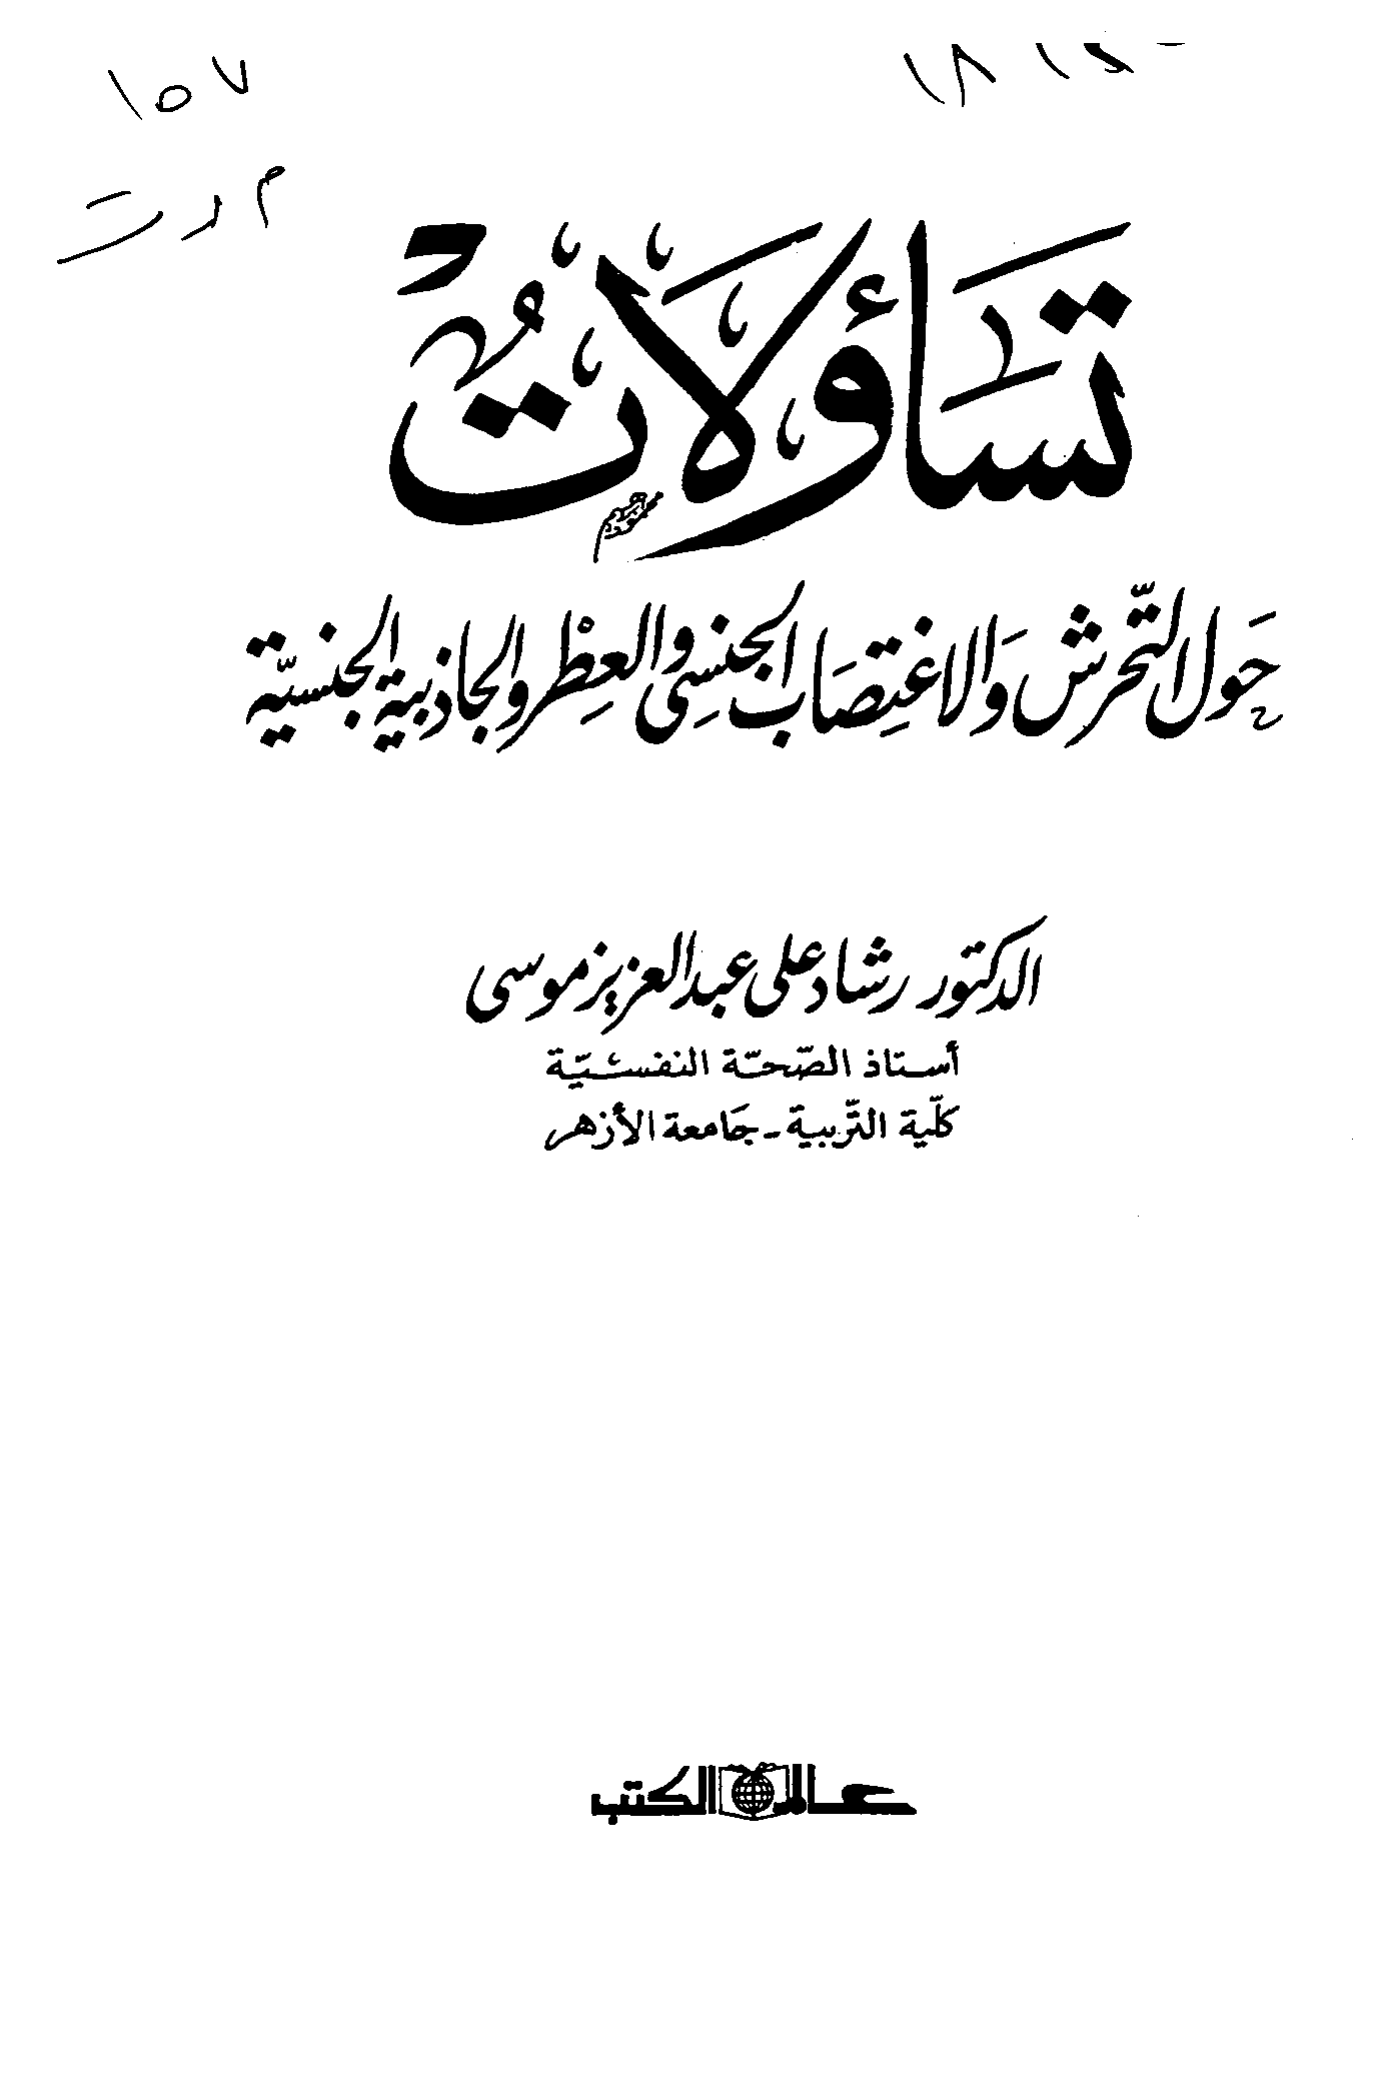 ١٥٧
م ر ت
تساؤلاتٌ
حَول التّحرش وَالاغتِصَاب الجنسِى والعِطْر والجاذبية الجنسيّة
الدكتور رشاد على عبد العزيز موسى
أستاذ الصّحّة النفسيّة
كلّية التّربية - جَامعة الأزهر
عالم الكتب